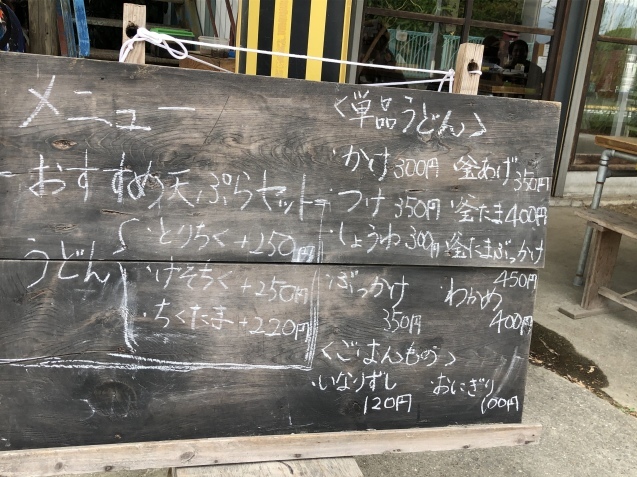 メニュー
おすすめ天ぷらセット
うどん
・とりちく +250円
・げそちく +250円
・ちくたま +220円
<単品うどん>
・かけ 300円 釜あげ 350円
つけ 350円 釜たま 400円
・しょうゆ 300円 釜たまぶっかけ 450円
・ぶっかけ 350円 わかめ 400円
<ごはんもの>
・いなりずし 120円 おにぎり 100円